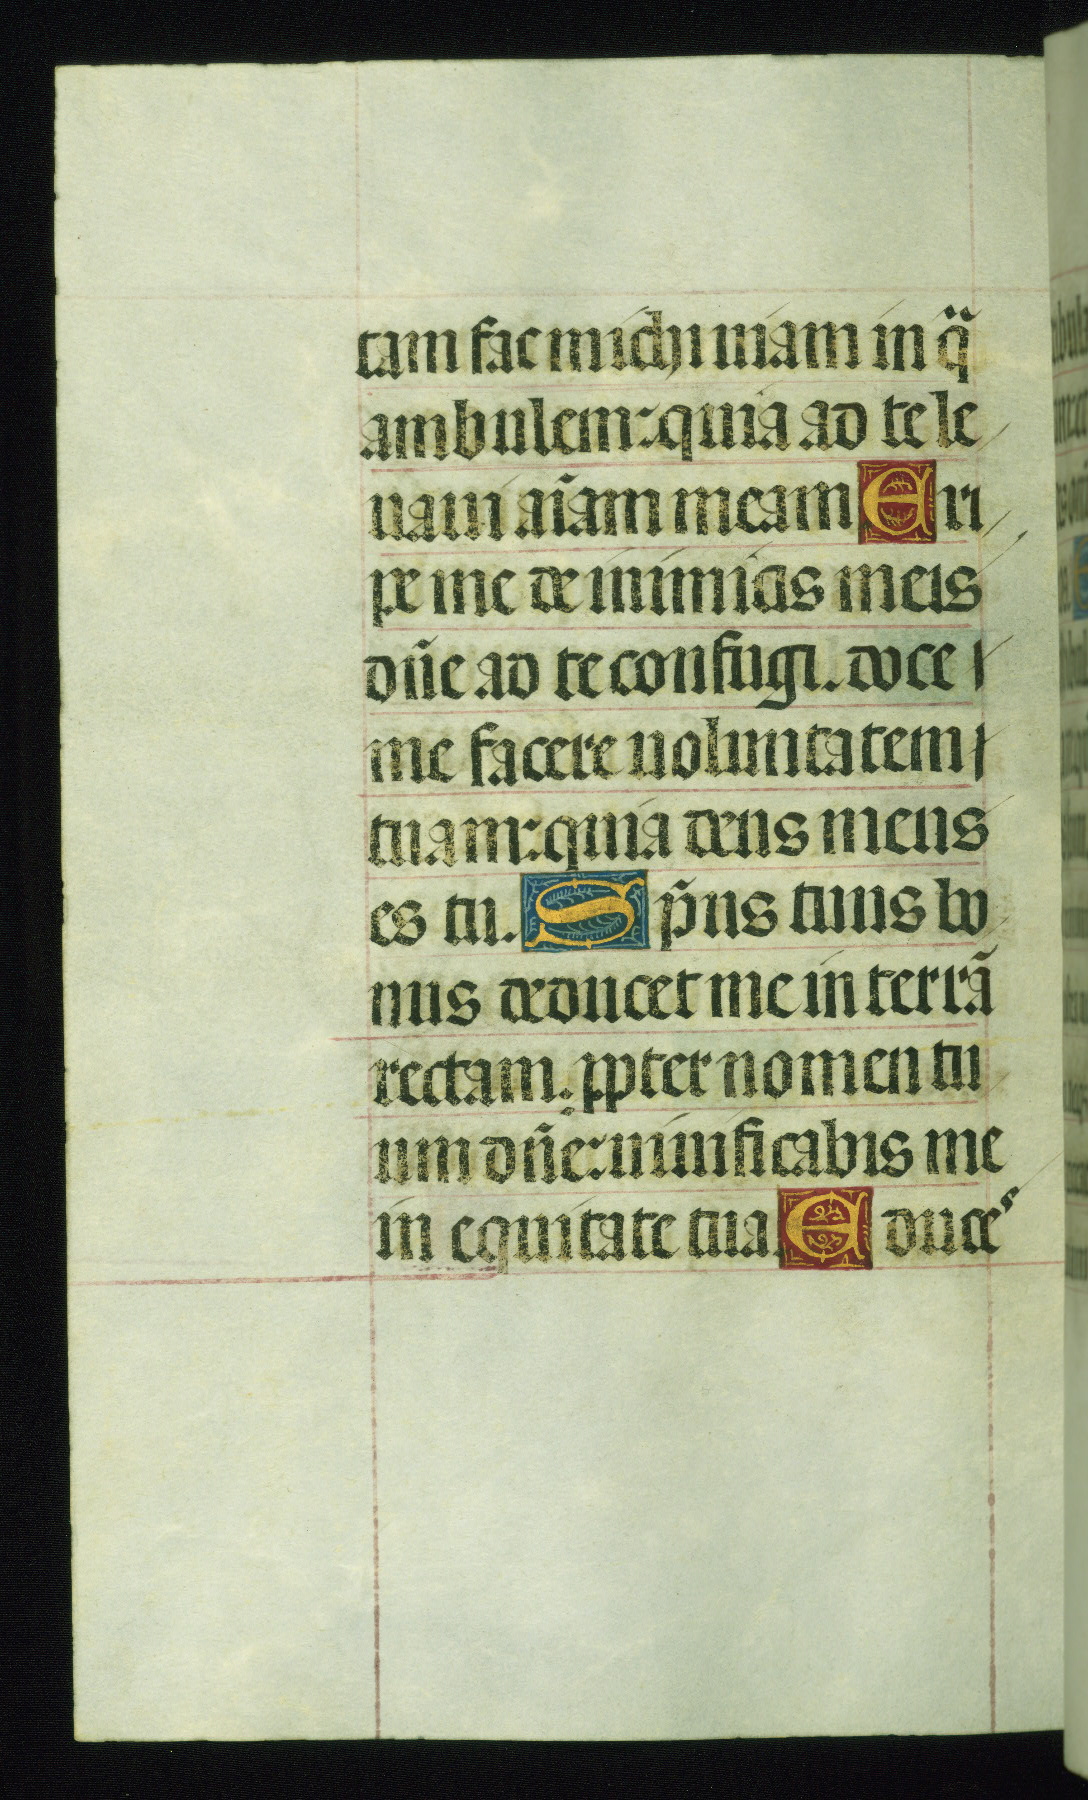 tam fac michi uiam in q̃
ambulem: quia ad te le
uaui aĩam meam Eri
pe me de inimicis meis
dñe ad te confugi. doce
me facere uoluntatem
tuam: quia deus meus
es tu. Sp̃us tuus bo
nus deducet me in terrã
rectam. ꝓpter nomen tu
um dñe: uiuificabis me
in equitate tua. Educes